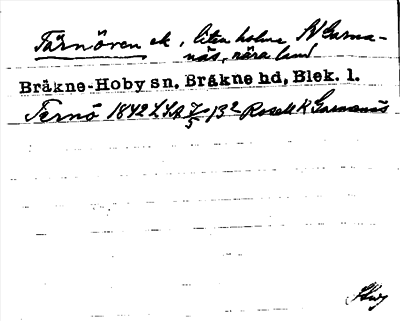 Tärnören ek, liten holme N Garna-
näs, nära land
Bräkne-Hoby sn. Bräkne hd, Blek. l.
Ternö 1842 LSA 7/5 13² Rosell K Garnanäs